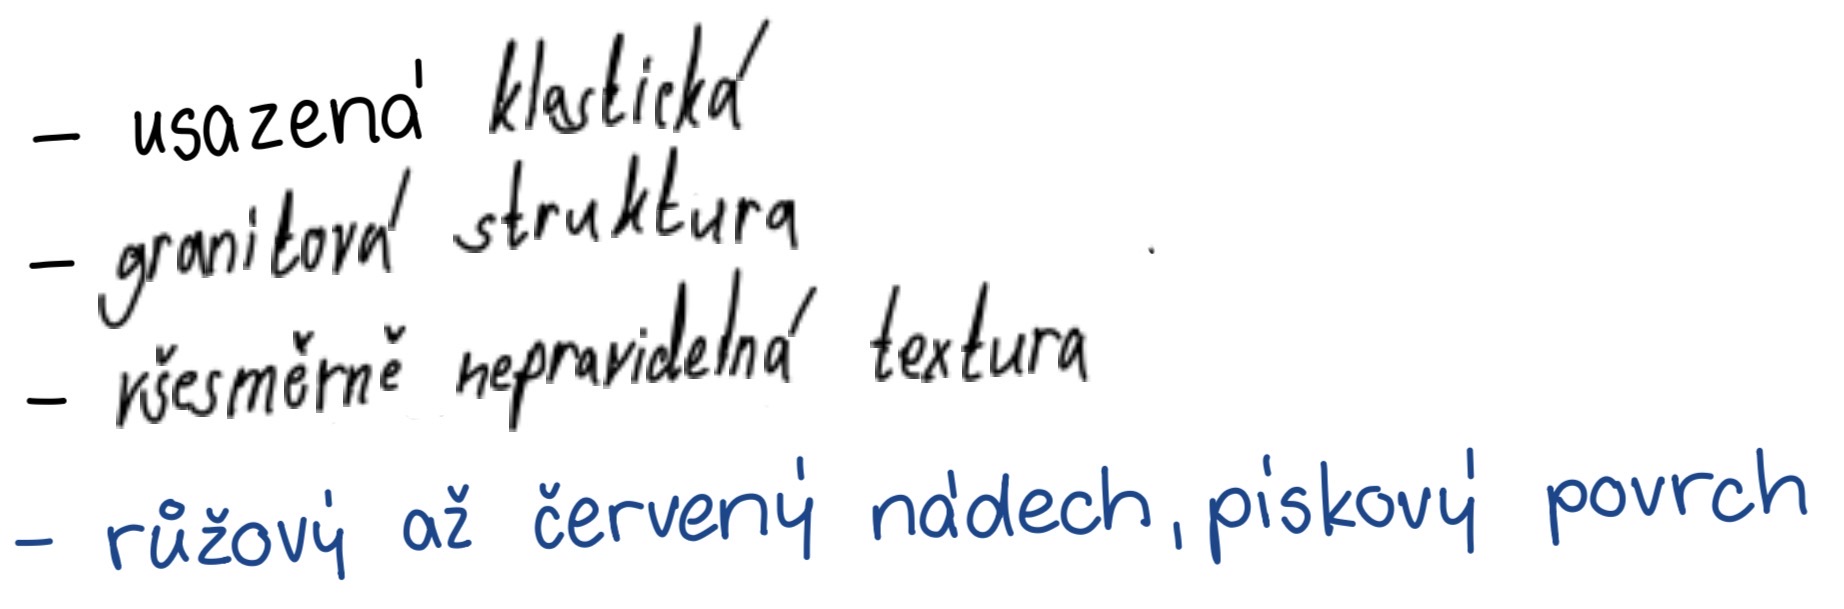 - usazená klastická
- granitová struktura
- všesměrně nepravidelná textura
- růžový až červený nádech, pískový povrch